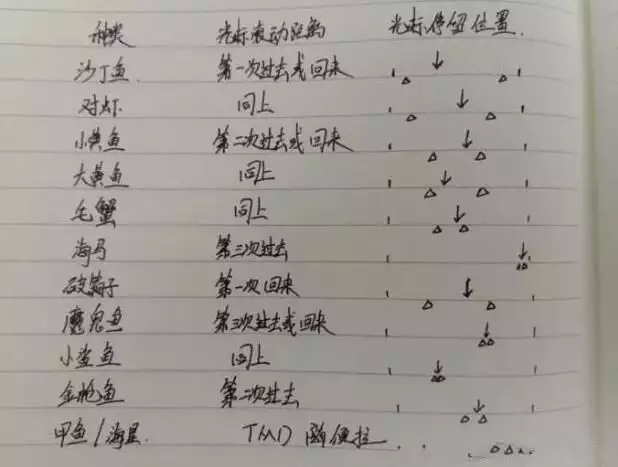 种类 光标滚动距离 光标停留位置
沙丁鱼 第一次过去或回来
对虾 同上
小黄鱼 第二次过去或回来
大黄鱼 同上
毛蟹 同上
海马 第三次过去
破箱子 第一次回来
魔鬼鱼 第三次过去或回来
小鲨鱼 同上
金枪鱼 第二次过去
甲鱼/海星 TMD 随便拉